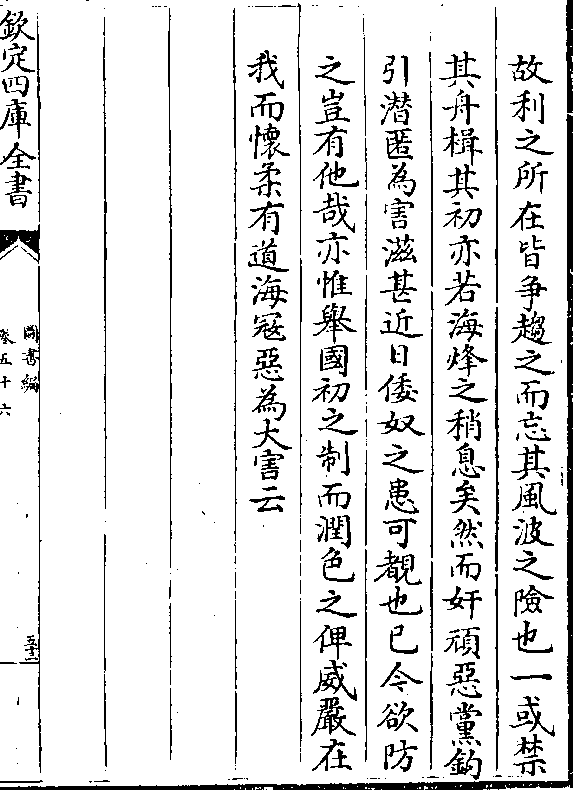 故利之所在皆争趨之而忘其風波之險也一或禁
其舟楫其初亦若海烽之稍息矣然而奸頑惡黨鈎
引潜匿為害滋甚近日倭奴之患可覩也已今欲防
之豈有他哉亦惟舉國初之制而潤色之俾威嚴在
我而懷柔有道海冦惡為大害云
欽定四庫全書
圖書編
卷五十六